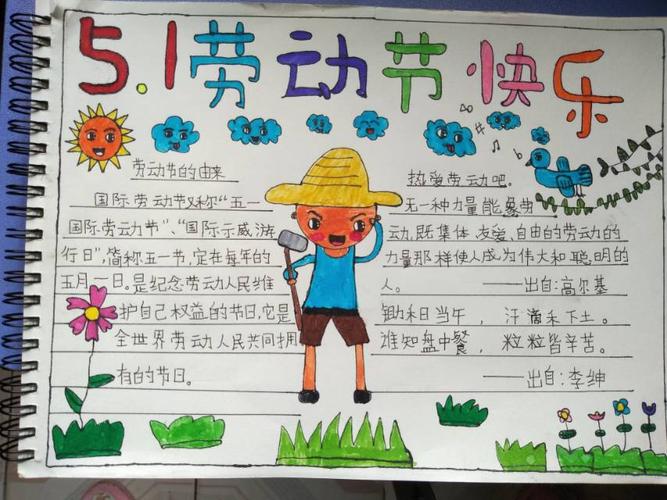 5.1劳动节快乐
劳动节的由来
国际劳动节又称“五一
国际劳动节”、“国际示威游
行日”,简称五一节,定在每年的
五月一日。是纪念劳动人民维
护自己权益的节日,它是
全世界劳动人民共同拥
有的节日。
热爱劳动吧。
无一种力量能象劳
动,既集体、友爱、自由的劳动的
力量那样使人成为伟大和聪明的
人。 ——出自:高尔基
锄禾日当午,汗滴禾下土。
谁知盘中餐,粒粒皆辛苦。
——出自:李绅